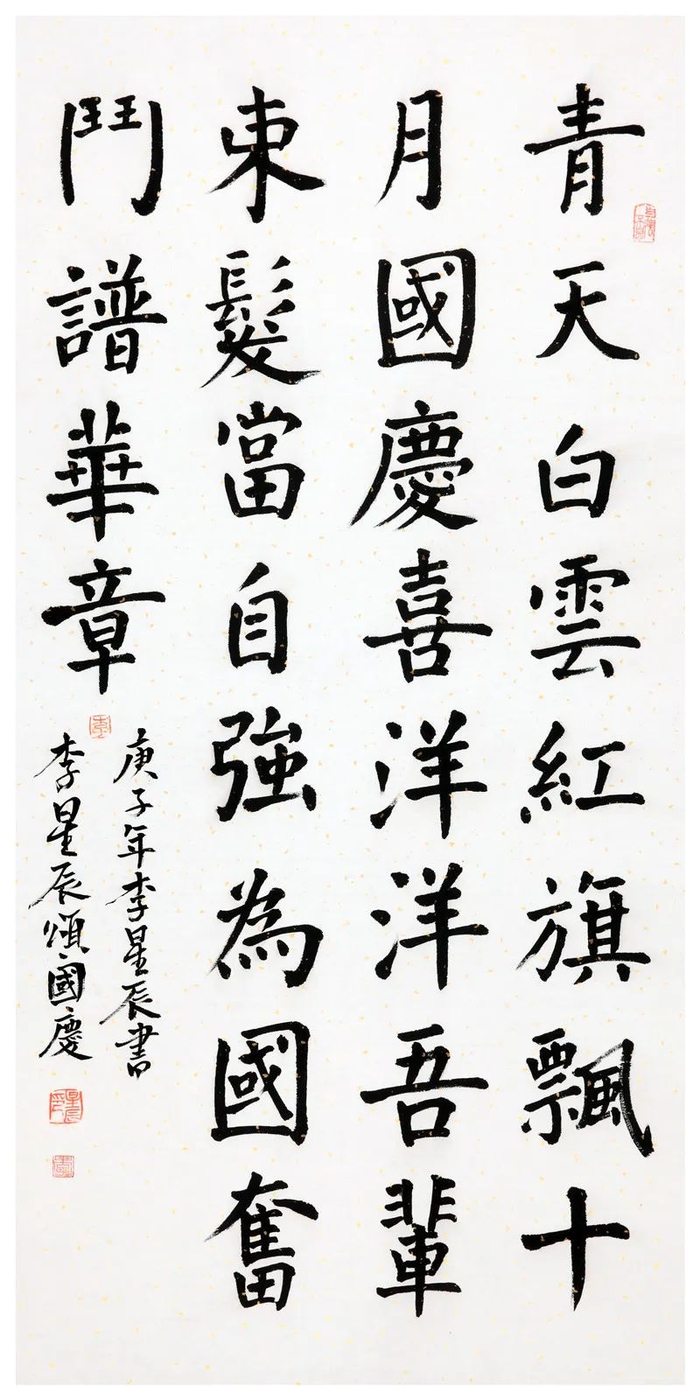 青天白雲紅旗飄十
月國慶喜洋洋吾輩
束髮當自強為國奮
鬥譜華章
庚子年李星辰書
李星辰頌國慶